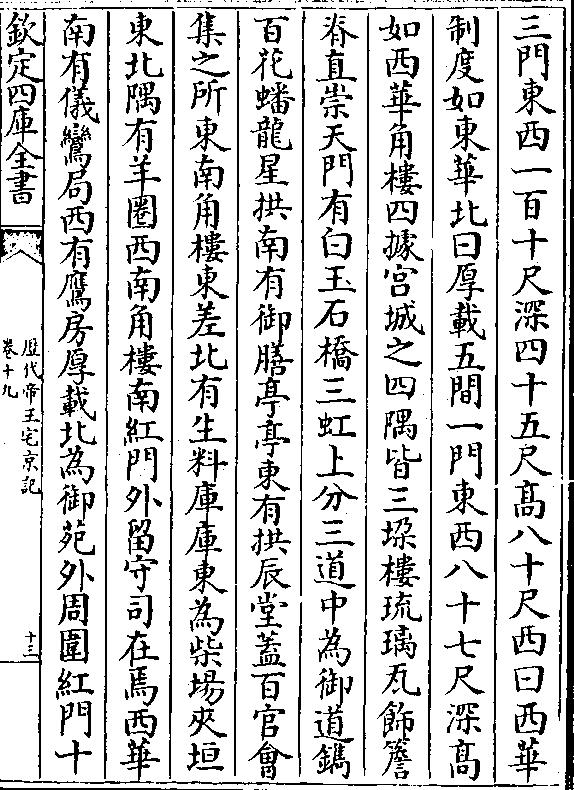 三門東西一百十尺深四十五尺髙八十尺西曰西華
制度如東華北曰厚載五間一門東西八十七尺深髙
如西華角樓四據宫城之四隅皆三垜樓琉璃瓦飾簷
脊直崇天門有白玉石橋三虹上分三道中為御道鐫
百花蟠龍星拱南有御膳亭亭東有拱辰堂蓋百官㑹
集之所東南角樓東差北有生料庫庫東為柴場夾垣
東北隅有羊圈西南角樓南紅門外留守司在焉西華
南有儀鸞局西有鷹房厚載北為御苑外周圍紅門十
欽定四庫全書
歴代帝王宅京記
卷十九
十三